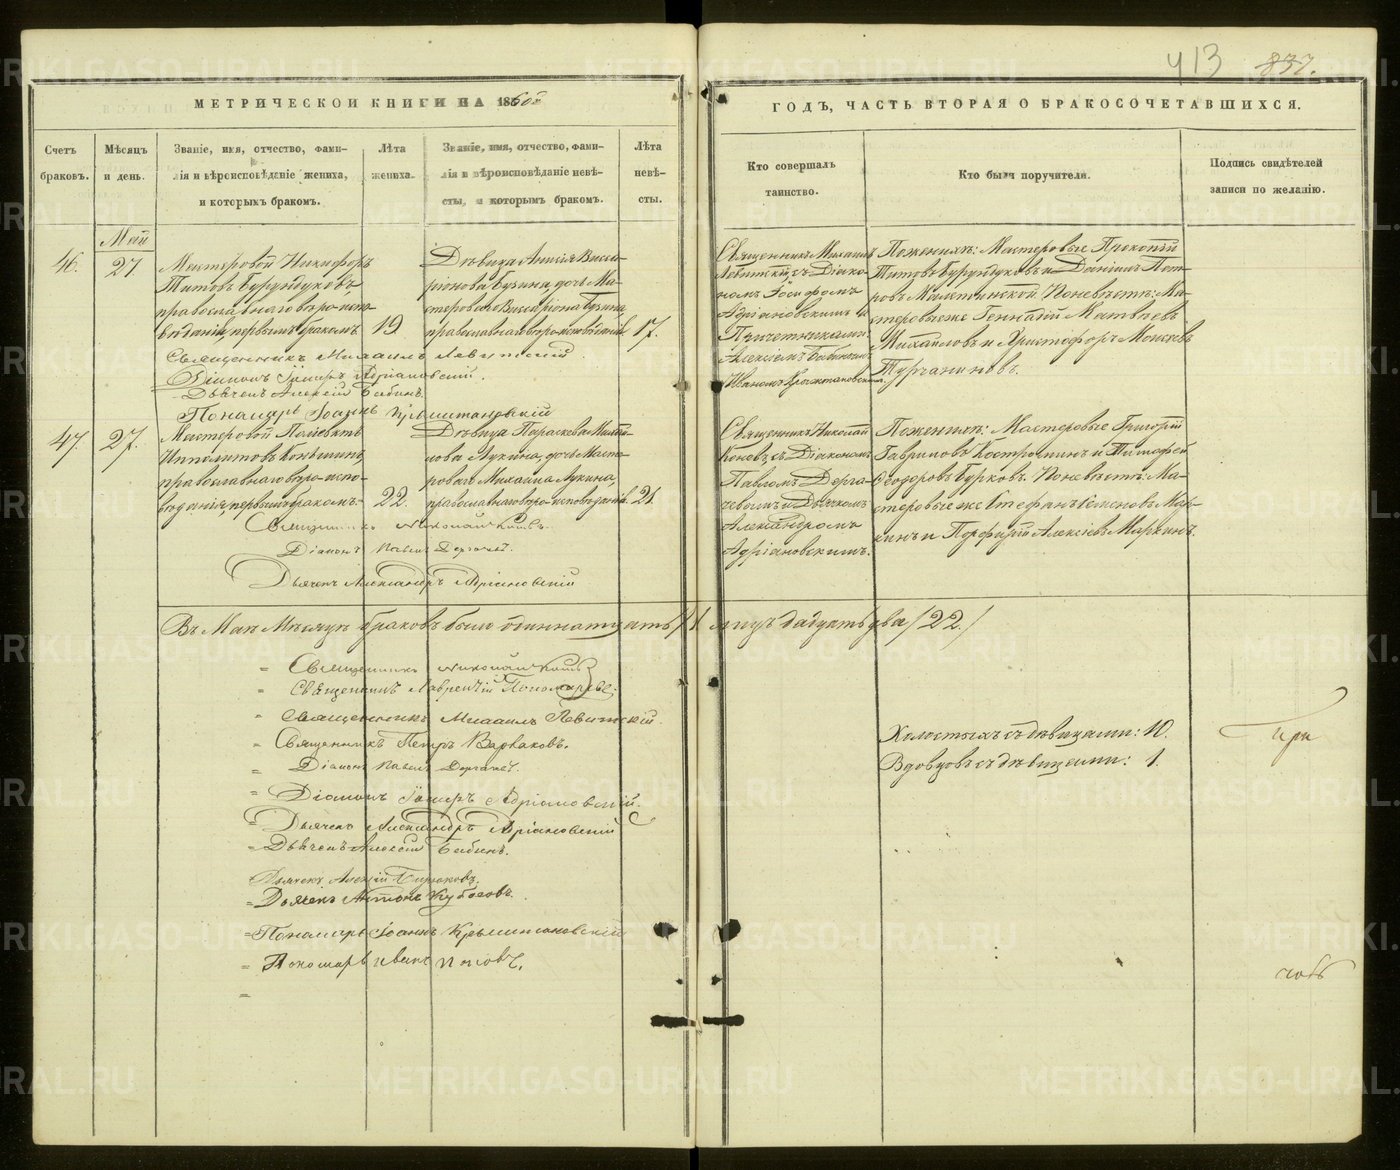 413 837.
МЕТРИЧЕСКОЙ КНИГИ НА 1860й
ГОДЪ, ЧАСТЬ ВТОРАЯ О БРАКОСОЧЕТАВШИХСЯ.
Счетъ браковъ.
Мѣсяцъ и день.
Званіе, имя, отчество, фами-
лія и вѣроисповѣданіе жениха,
и которымъ бракомъ.
Лѣта
жениха.
Званіе, имя, отчество, фами-
лія и вѣроисповѣданіе невѣ-
сты, и которымъ бракомъ.
Лѣта
невѣ-
сты.
Кто совершалъ
таинство.
Кто были поручители.
Подпись свидѣтелей
записи по желанію.
Май
46.
27
Мастеровой Никифоръ
Титовъ Бурундуковъ
православнаго вѣро-испо-
вѣданія, первымъ бракомъ.
19
Дѣвица
Бузина, дочь Ма-
терового Бузина,
православнаго вѣро-исповѣданія
17.
Священникъ Михаилъ
Левитскій съ Діако-
номъ Іосифомъ
Адріановскимъ и
Причетниками
Алексѣемъ Бабинымъ
Иваномъ
По женихѣ: Мастеровые Прокопій
Титовъ Бурундуковъ и Даніилъ Пет-
ровъ По невѣстѣ: Ма-
стеровые же Геннадій Матвѣевъ
Михайловъ и Христофоръ Моисеевъ
Турчаниновъ.
Священникъ Михаилъ Левитскій.
Діаконъ Адріановскій.
Дьячекъ Алексій Бабинъ.
Пономарь Іоаннъ
47.
27.
Мастеровой Полиевктъ
Ипполитовъ
православнаго вѣро-испо-
вѣданія, первымъ бракомъ.
22.
Дѣвица Параскева Михай-
лова Лукина, дочь Масте-
роваго Михаила Лукина,
православнаго вѣро-исповѣданія
21.
Священникъ Николай
съ Діакономъ
Павломъ Дерга-
чевымъ и Дьячкомъ
Александромъ
Адріановскимъ.
По женихѣ: Мастеровые Григорій
Гавриловъ Костромин и
Ѳеодоровъ Бурковъ. По невѣстѣ: Ма-
стеровые же Стефанъ Семеновъ Мар-
кинъ и Порфирій Алексѣевъ Маркинъ.
Священникъ Николай
Діаконъ Павелъ Дергачевъ.
Дьячекъ Александръ Адріановскій
Въ Маѣ Мѣсяцѣ браковъ было одиннатцать /11 лицъ дватцать два /22./
Священникъ Николай
Священникъ Лаврентій Пономаревъ;
Священникъ Михаилъ Левитскій.
Священникъ Петръ Варваковъ.
Діаконъ Павелъ Дергачевъ.
Діаконъ Адріановскій.
Дьячекъ Александръ Адріановскій
Дьячекъ Алексій Бабинъ.
Дьячекъ Алексій
Дьячекъ Антонъ Кубасовъ.
Пономарь Іоаннъ
Пономарь Иванъ Поповъ.
Холостыхъ съ дѣвицами: 10.
Вдовцовъ съ дѣвицами: 1.
При